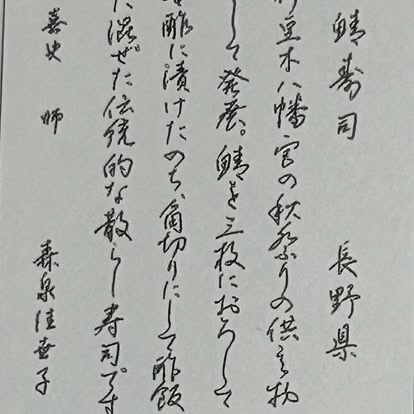 鯖寿司 長野県
伊豆木八幡宮の秋祭りの供え物
して発展。鯖を三枚におろして
酢に漬けたのち、角切りにして酢飯
に混ぜた伝統的な散らし寿司です
喜史 師 森泉佳